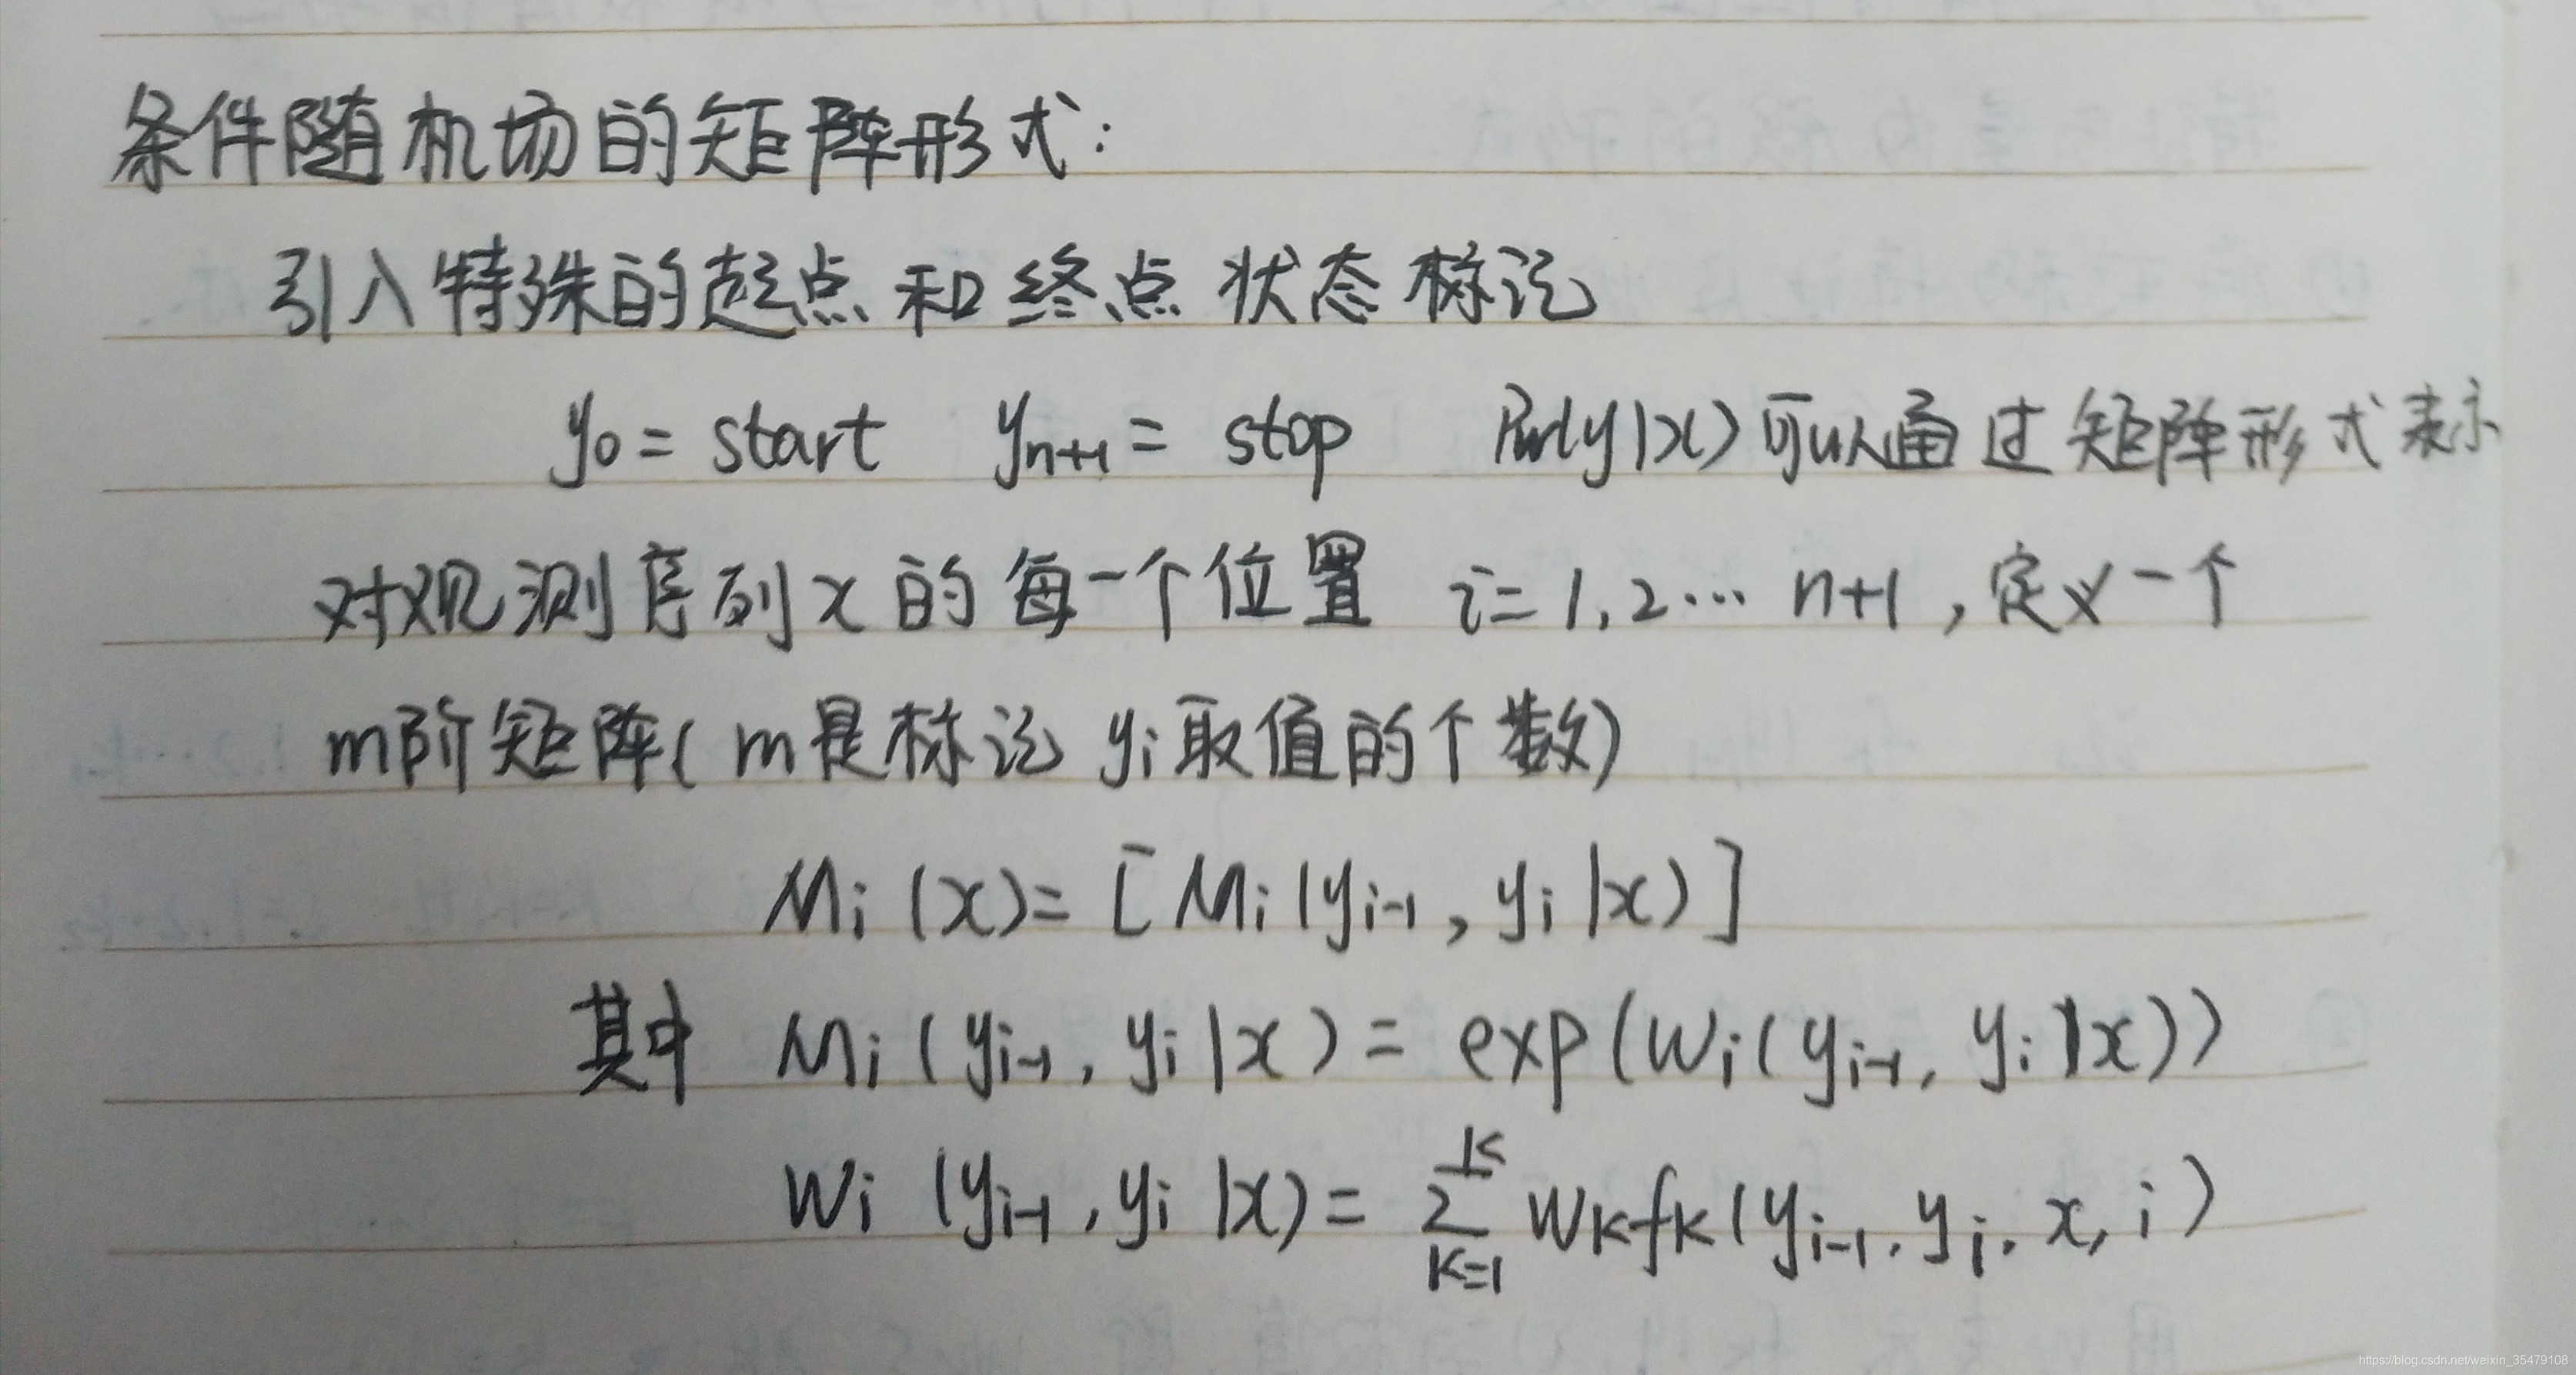 条件随机场的矩阵形式:
引入特殊的起点和终点状态标记
y₀ = start yₙ₊₁ = stop Pw(y|x)可以通过矩阵形式表示
对观测序列x的每一个位置 i=1,2… n+1,定义一个
m阶矩阵(m是标记 yᵢ取值的个数)
Mᵢ(x)=[Mᵢ(yᵢ₋₁,yᵢ|x)]
其中 Mᵢ(yᵢ₋₁,yᵢ|x) = exp(Wᵢ(yᵢ₋₁,yᵢ|x))
Wᵢ(yᵢ₋₁,yᵢ|x) = ∑ₖ₌₁ᴷ wₖfₖ(yᵢ₋₁,yᵢ,x,i)
https://blog.csdn.net/weixin_35479108